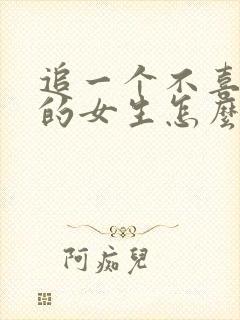 追一个不喜
的女生怎麼
阿痴兒